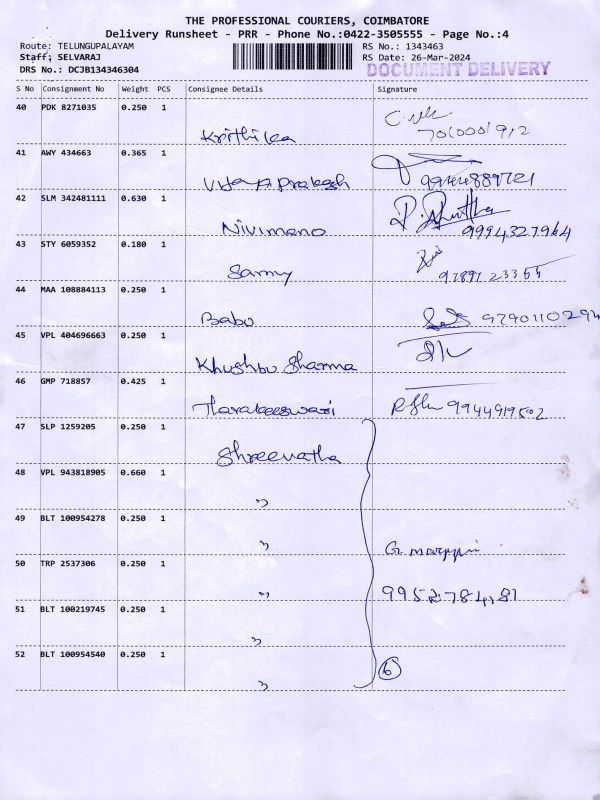 THE PROFESSIONAL COURIERS, COIMBATORE
Delivery Runsheet - PRR - Phone No.:0422-3505555 - Page No.:4
Route: TELUNGUPALAYAM RS No.: 1343463
Staff: SELVARAJ RS Date: 26-Mar-2024
DRS No.: DCJB134346304 DOCUMENT DELIVERY
S No Consignment No Weight PCS Consignee Details Signature
40 PDK 8271035 0.250 1
Krithika
41 AWY 434663 0.365 1
Vijaya Prakash
42 SLM 342481111 0.630 1
Nivimano 9994327964
43 STY 6059352 0.180 1
Sammy
44 MAA 108884113 0.250 1
Babu 9790110294
45 VPL 404696663 0.250 1
Khushbu Sharma
46 GMP 718857 0.425 1
Tharakeeswari 9944919502
47 SLP 1259205 0.250 1
Shreevatha
48 VPL 943818905 0.660 1
"
49 BLT 100954278 0.250 1
"
50 TRP 2537306 0.250 1
"
51 BLT 100219745 0.250 1
"
52 BLT 100954540 0.250 1
6
"